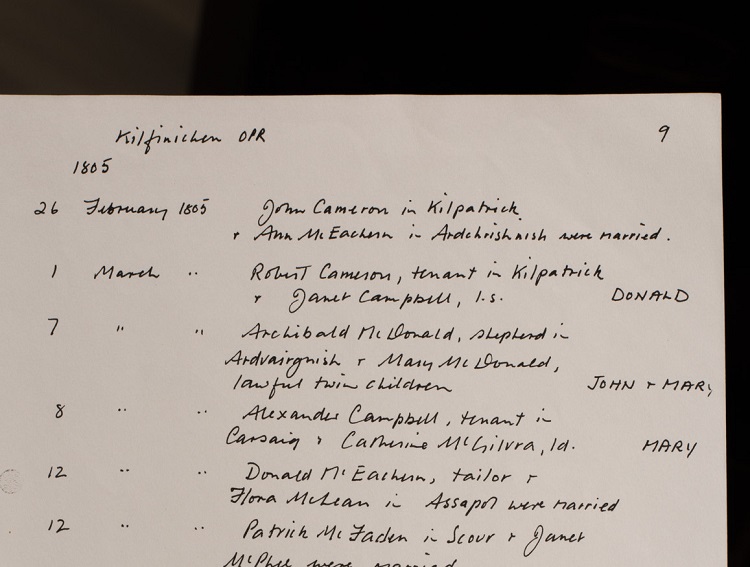 Kilfinichen OPR 9
1805
26 February 1805 John Cameron in Kilpatrick
+ Ann McEachern in Ardchrishnish were married.
1 March " Robert Cameron, tenant in Kilpatrick
+ Janet Campbell, l.s. DONALD
7 " " Archibald McDonald, shepherd in
Ardvairgnish + Mary McDonald,
lawful twin children JOHN + MARY
8 " " Alexander Campbell, tenant in
Carsaig + Catherine McGilvra, ld. MARY
12 " " Donald McEachern, tailor +
Flora McLean in Assapol were married
12 " " Patrick McFaden in Scour + Janet
McPhee were married